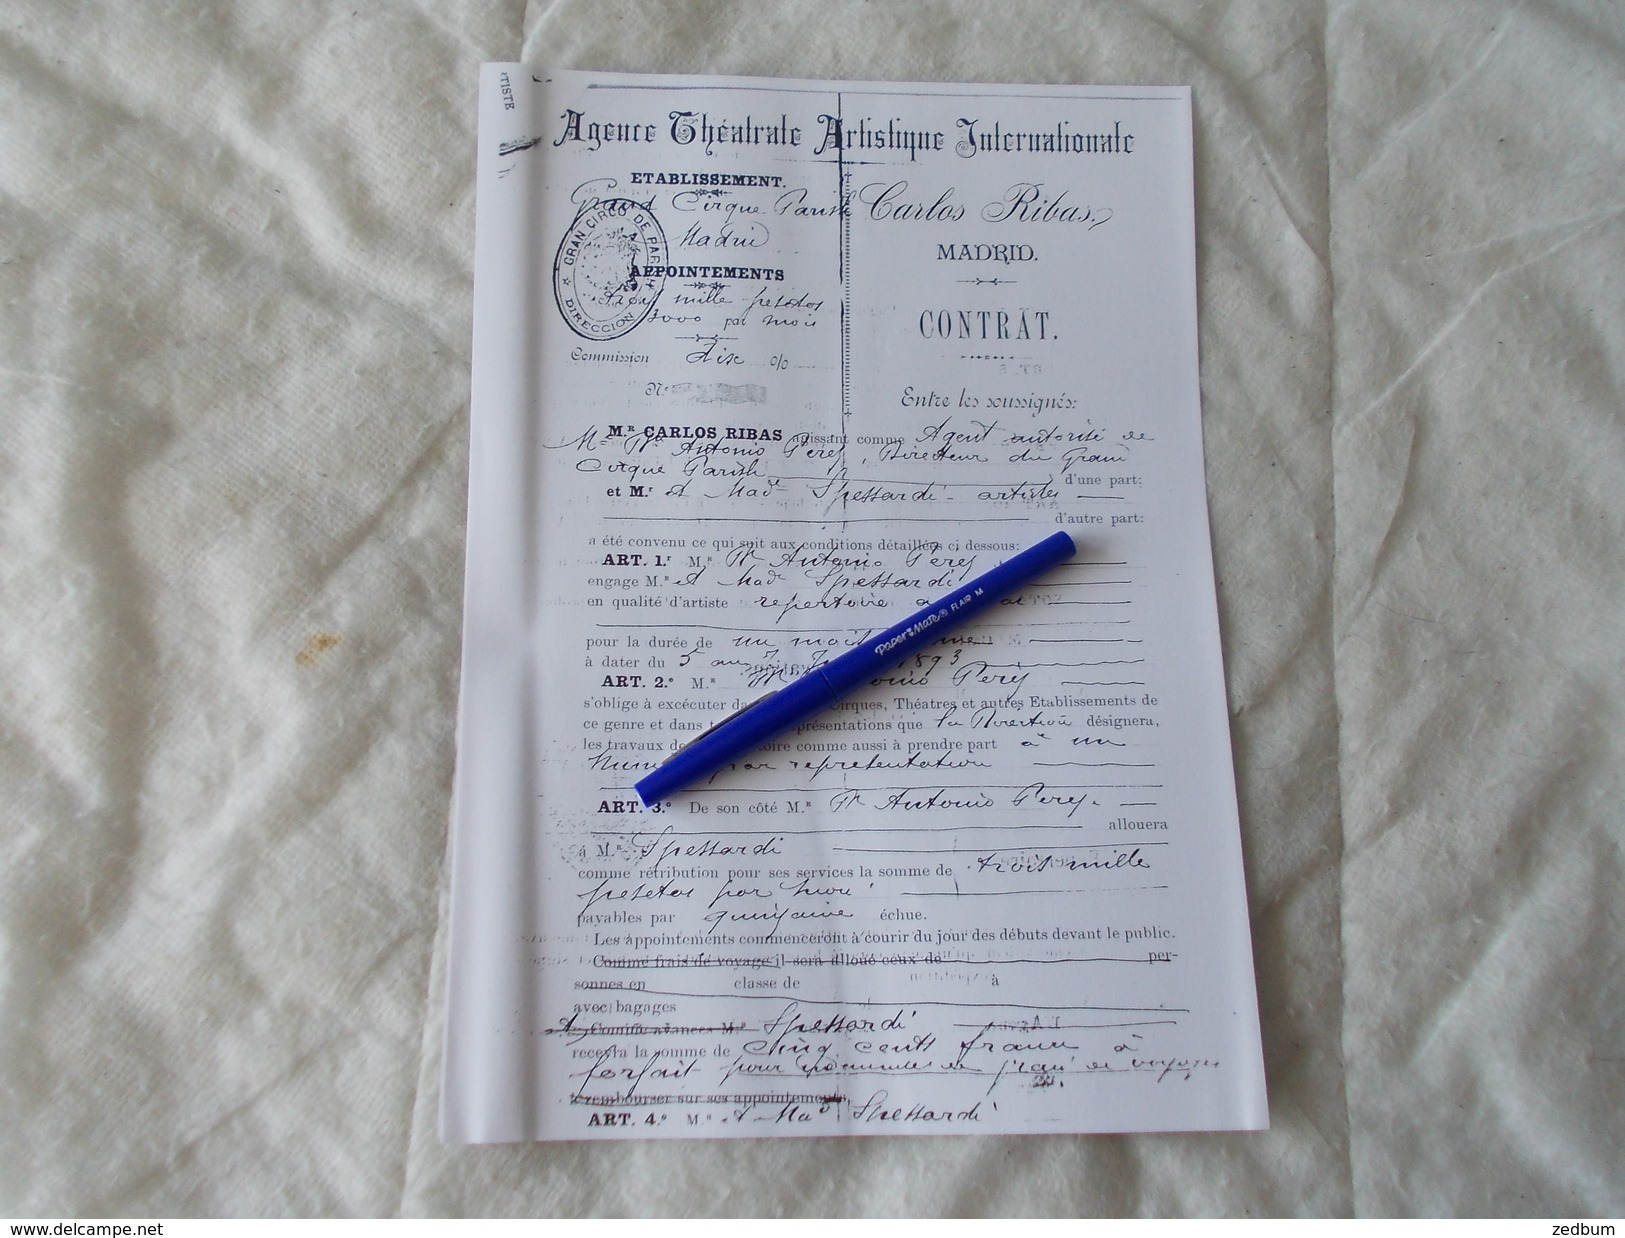 TISTE
Agence Théatrale Artistique Internationale
ETABLISSEMENT.
Grand Cirque Parish
Madrid
GRAN CIRCO DE PARISH
DIRECCION
APPOINTEMENTS
trois mille pesetas
3000 par mois
Commission dix o/o
N.º
Carlos Ribas.
MADRID.
CONTRAT.
Entre les soussignés:
M.R CARLOS RIBAS agissant comme Agent autorisé de
Mr Wm Antonio Perez, Directeur du Grand
Cirque Parish d'une part:
et M.r et Made Spessardi - artistes
d'autre part:
a été convenu ce qui suit aux conditions détaillées ci dessous:
ART. 1.r M.R Wm Antonio Perez
engage M.R et Made Spessardi
en qualité d'artiste repertoire
pour la durée de un mois
à dater du 5 au 1893
ART. 2.º M.R Antonio Perez
s'oblige à excécuter da Cirques, Théatres et autres Etablissements de
ce genre et dans présentations que la Direction désignera,
les travaux de comme aussi à prendre part à un
Numero par representation
ART. 3.º De son côté M.R Wm Antonio Perez.
allouera
à M.R Spessardi
comme rétribution pour ses services la somme de trois mille
pesetas par mois
payables par quinzaine échue.
Les appointements commenceront à courir du jour des débuts devant le public.
Comme frais de voyage il sera alloué ceux de per-
sonnes en classe de à
avec bagages
Comme avances M.R Spessardi
recevra la somme de cinq cents francs à
forfait pour de frais de voyages
rembourser sur ses appointements.
ART. 4.º M.R et Made Spessardi
Paper Mate® FLAIR M
www.delcampe.net
zedbum